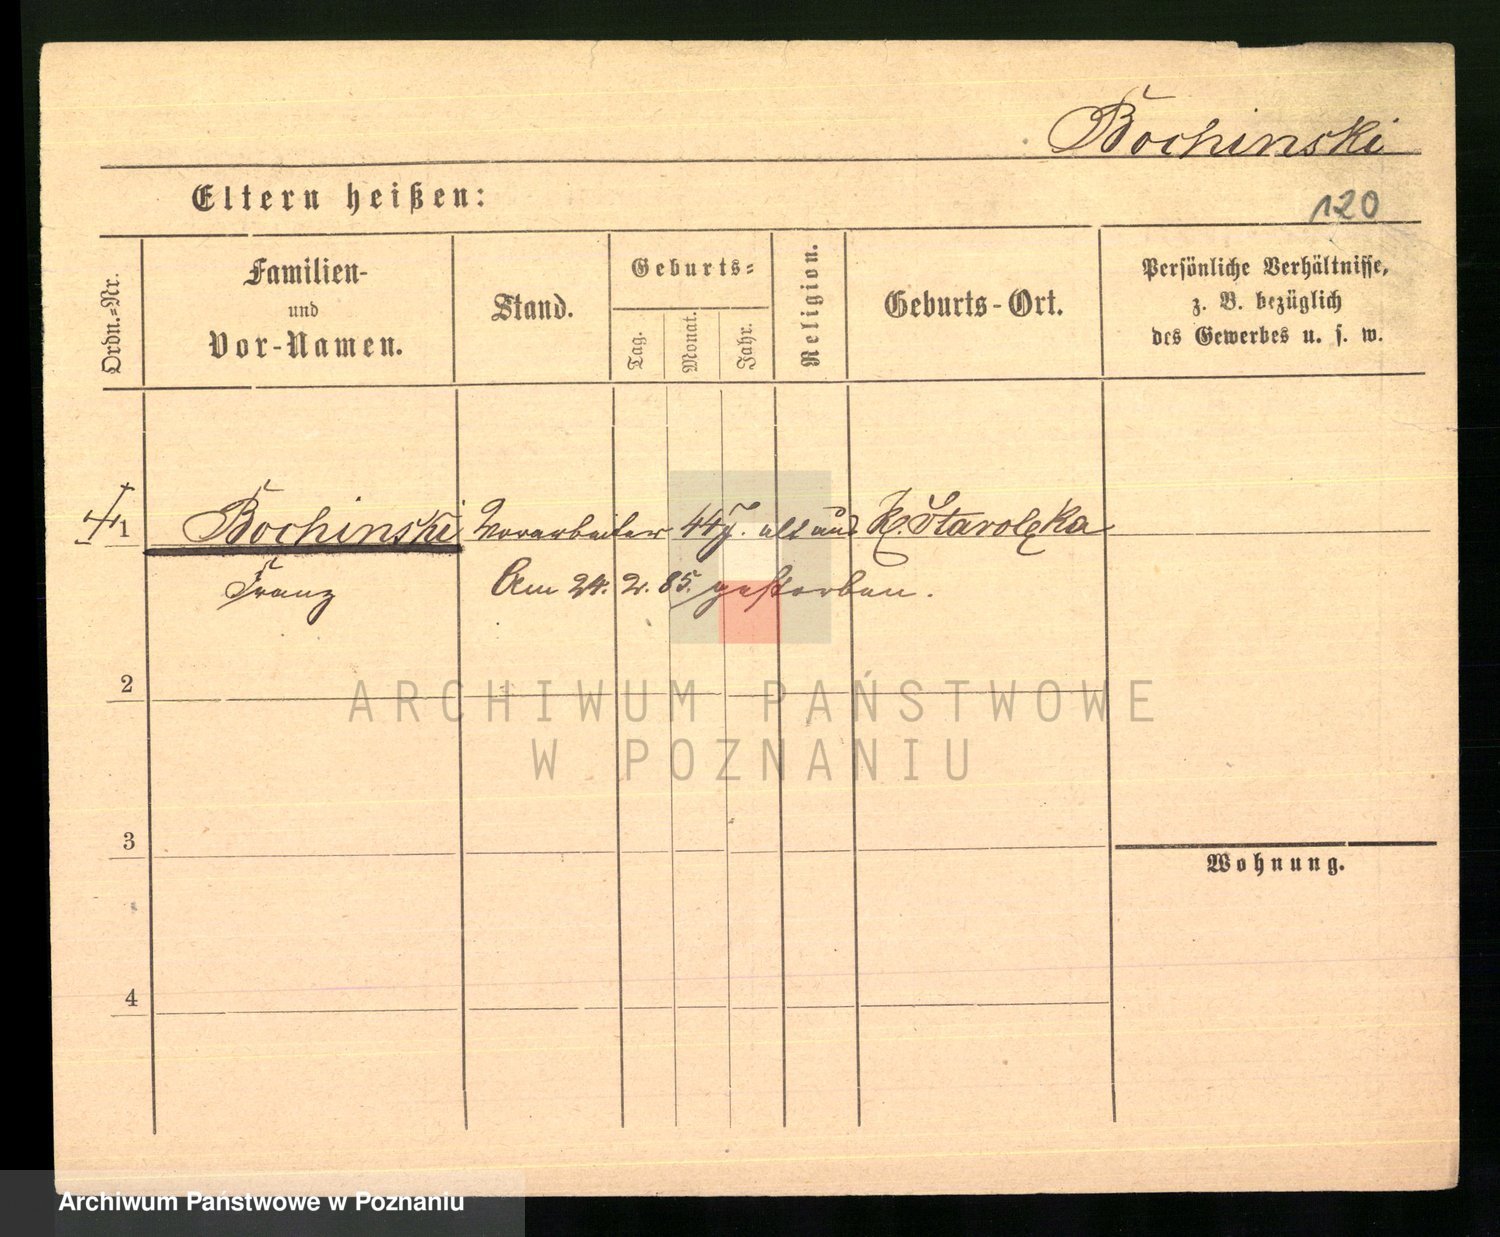 Bochinski
Eltern heißen:
120
Ordn.=Nr.
Familien-
und
Vor-Namen.
Stand.
Geburts=
Tag.
Monat.
Jahr.
Religion.
Geburts-Ort.
Persönliche Verhältnisse,
z. B. bezüglich
des Gewerbes u. s. w.
1 Bochinski Vorarbeiter 44 J. alt aus Kl. Starolęka
Franz Am 24. 2. 85. gestorben.
2
ARCHIWUM PAŃSTWOWE
W POZNANIU
3
Wohnung.
4
Archiwum Państwowe w Poznaniu